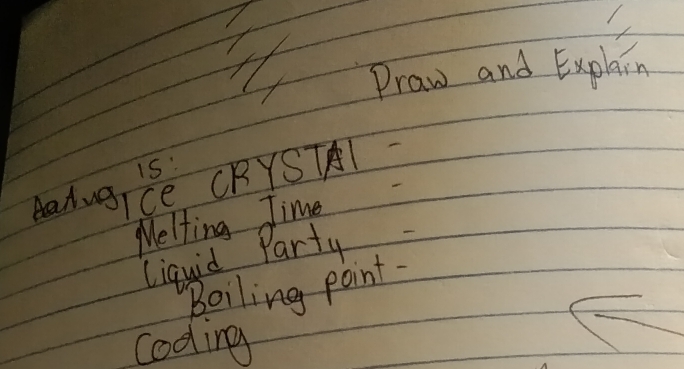 Draw and Explain
is:
Ice CRYSTAL -
Melting Time -
Liquid Party -
Boiling point -
Cooling